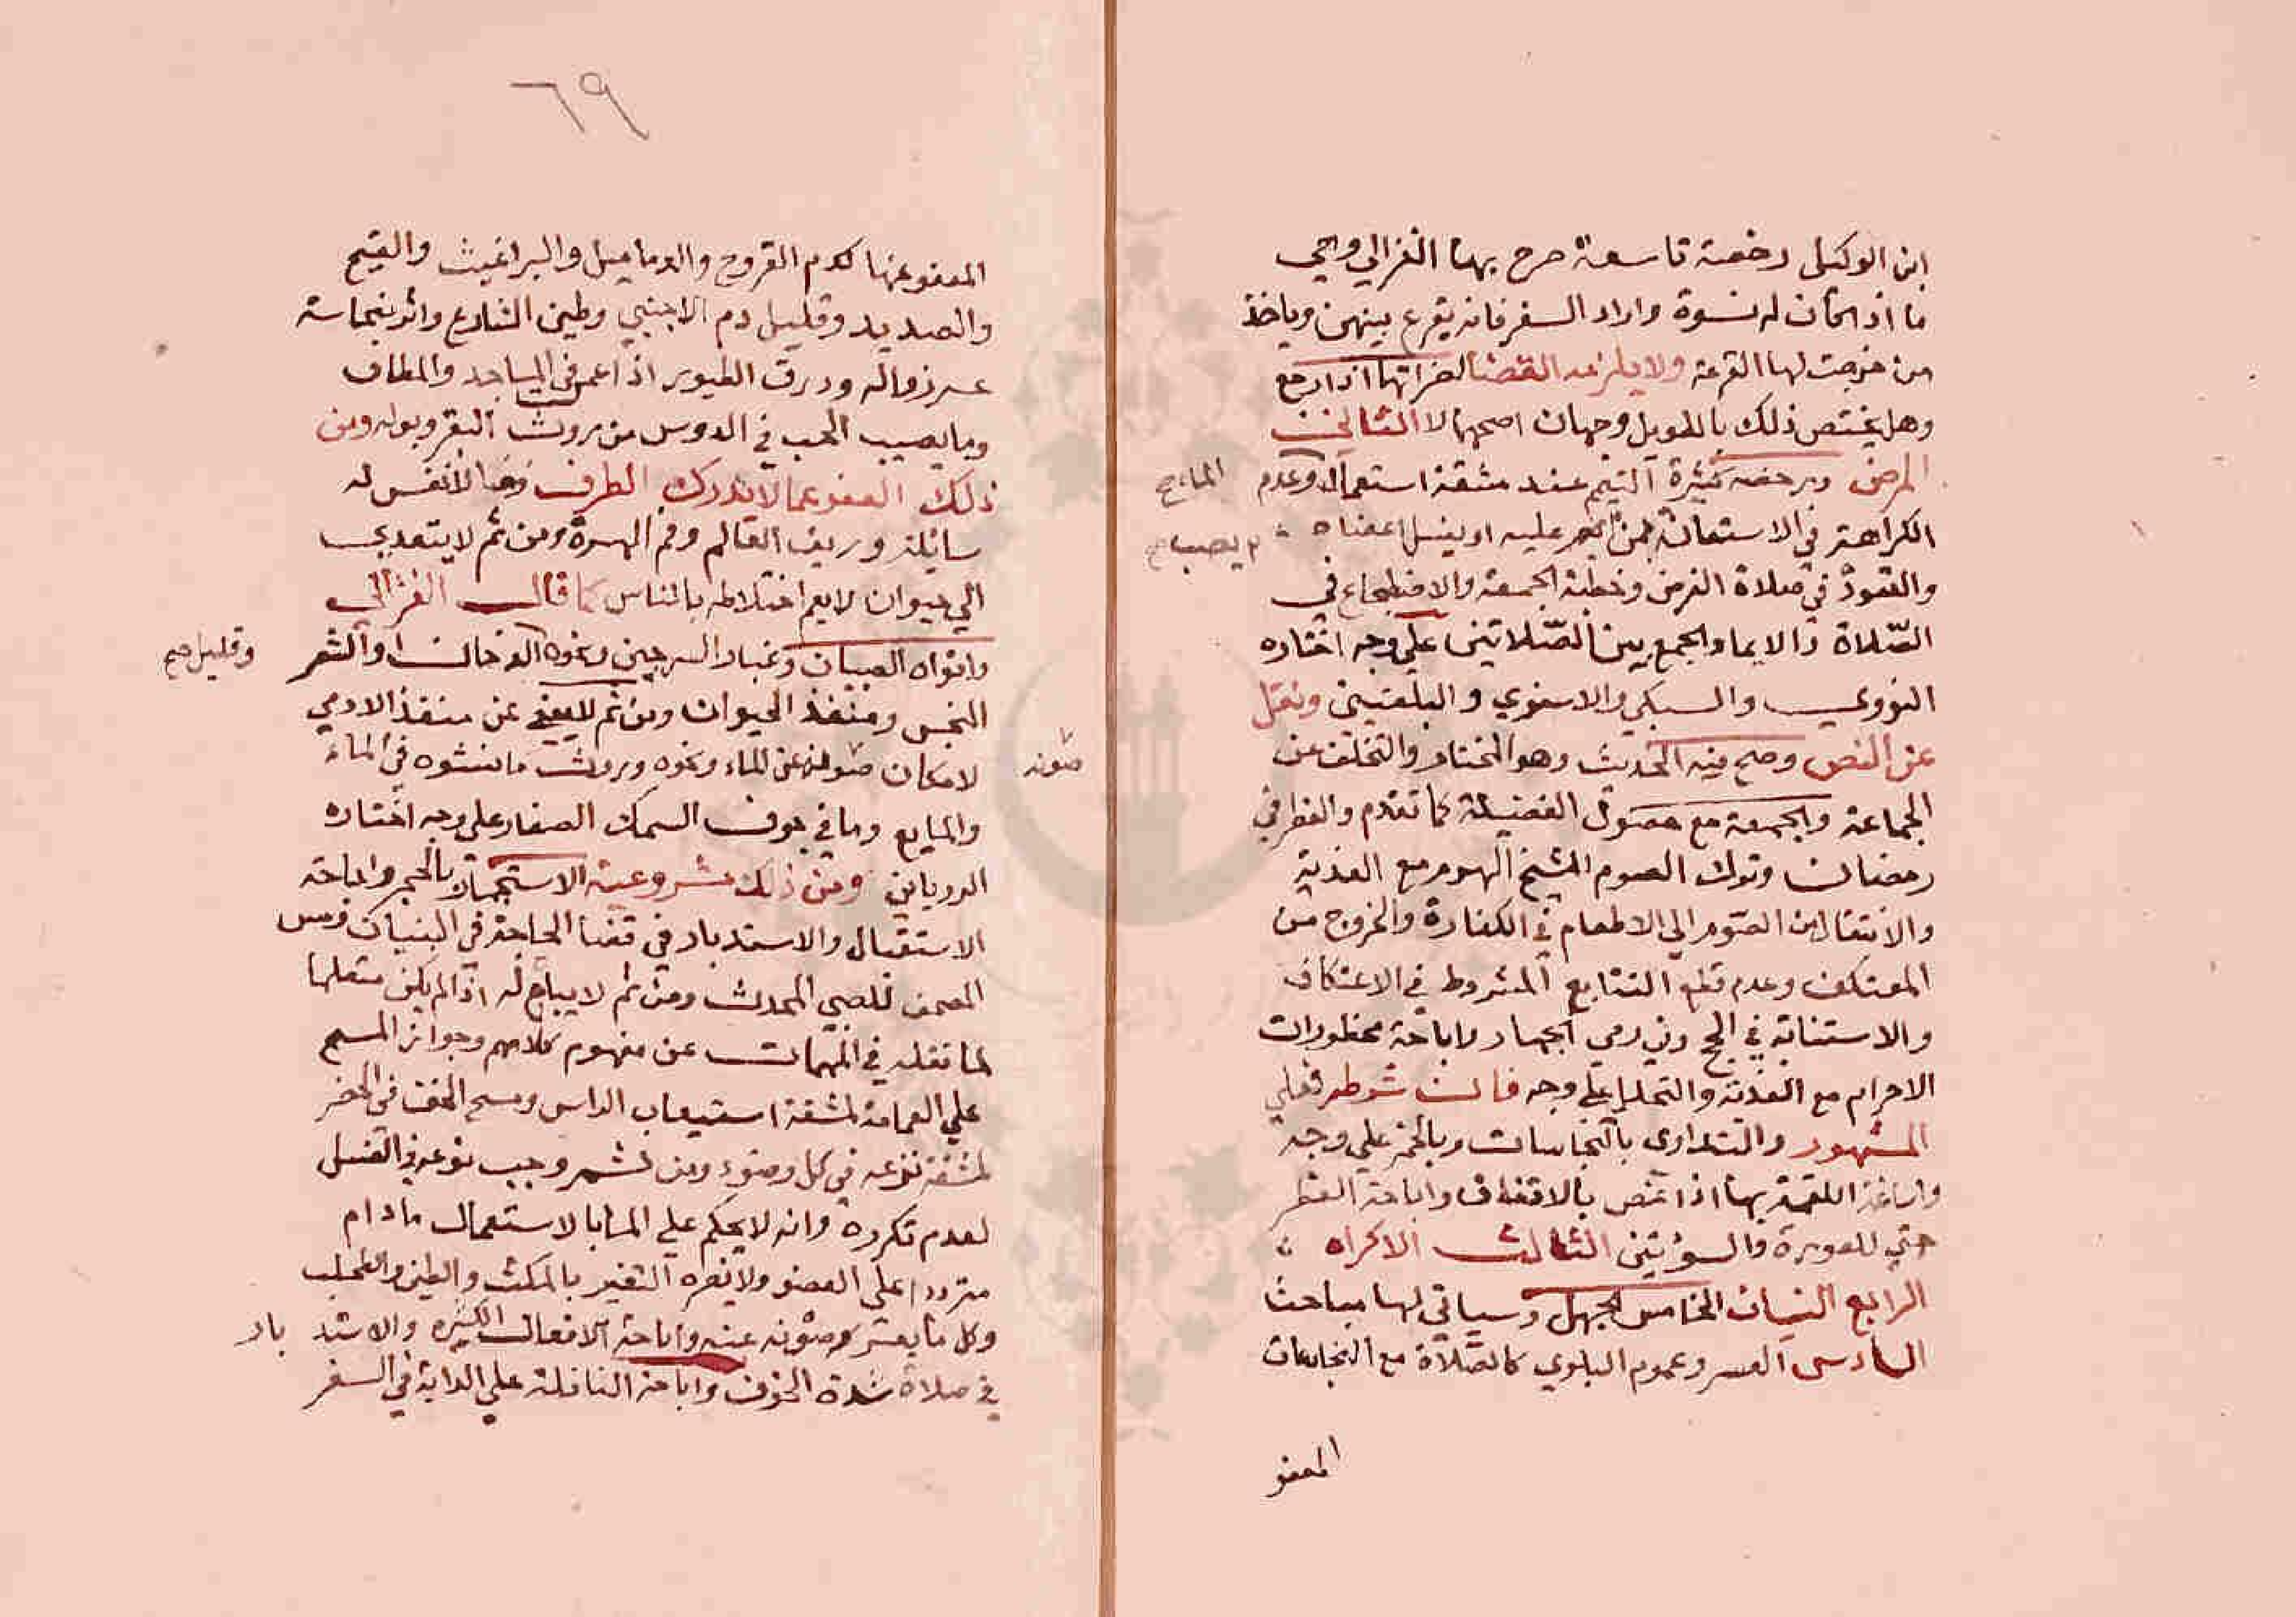 ابن الوكيل رخصة تاسعة صرح بها الغزالي وهي
ما اذا كان له نسوة واراد السفر فانه يقرع بينهن وياخذ
من خرجت لها القرعة ولا يلزمه القضا لضراتها اذا رجع
وهل يختص ذلك بالطويل وجهان اصحهما لا الثاني
المرض ورخصه كثيرة التيمم عند مشقة استعمال وعدم
الماء صح
الكراهة في الاستعانة بمن يصب عليه او يغسل اعضاه
يصب صح
والقعود في صلاة الفرض وخطبة الجمعة والاضطجاع في
الصلاة والايما والجمع بين الصلاتين علي وجه اختاره
النووي والسبكي والاسنوي والبلقيني ونقل
عن النص وصح فيه الحديث وهو المختار والتخلف عن
الجماعة والجمعة مع حصول الفضيلة كما تقدم والفطر في
رمضان وترك الصوم للشيخ الهرم مع الفدية
والانتقال من الصوم الي الاطعام في الكفارة والخروج من
المعتكف وعدم قطع التتابع المشروط في الاعتكاف
والاستنابة في الحج وفي رمي الجمار واباحة محظورات
الاحرام مع الفدية والتحلل علي وجه فان شرطه فعلي
المشهور والتداوي بالنجاسات وبالخمر علي وجه
واساغة اللقمة بها اذا غص بالاتفاق واباحة النظر
حتي للعورة والسوئتين الثالث الاكراه
الرابع النسيان الخامس الجهل وسياتي لها مباحث
السادس العسر وعموم البلوي كالصلاة مع النجاسات
المعفو
٦٩
المعفو عنها كدم القروح والدماميل والبراغيث والقيح
والصديد وقليل دم الاجنبي وطين الشارع واثر نجاسة
عسر زواله وذرق الطيور اذا عم في المساجد والمطاف
وما يصيب الحب في الدوس من روث البقر وبوله ومن
ذلك العفو عما لا يدركه الطرف وما لا نفس له
سائلة وريق النائم وفم الهرة ومن ثم لا يتعدي
الي حيوان لا يعم اختلاطه بالناس كما قال الغزالي
وافواه الصبيان وغبار السرجين ونحوه الدخان او الشعر
وقليل صح
النجس ومنفذ الحيوان ومن ثم لا يعفي عن منفذ الادمي
لامكان صونه عن الماء ونحوه وروث ما نشوه في الماء
صونه
والمايع وما في جوف السمك الصغار علي وجه اختاره
الروياني ومن ذلك مشروعية الاستجمار بالحجر واباحة
الاستقبال والاستدبار في قضا الحاجة في البنيان ومس
المصحف للصبي المحدث ومن ثم لا يباح له اذا لم يكن متعلما
لما نقله في المهمات عن مفهوم كلامهم وجواز المسح
علي العمامة لمشقة استيعاب الراس ومسح الخف في الحضر
لمشقة نزعه في كل وضوء ومن ثم وجب نزعه في الغسل
لعدم تكرره وانه لا يحكم علي الما بالاستعمال ما دام
مترددا علي العضو ولا يضره التغير بالمكث والطين والطحلب
وكل ما يعسر صونه عنه واباحة الافعال الكثيرة والاستدبار
في صلاة شدة الخوف واباحة النافلة علي الدابة في السفر